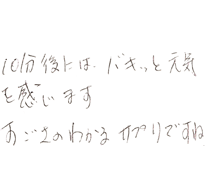 10分後には、バキッと元気
を感じます
すごさのわかるサプリですね